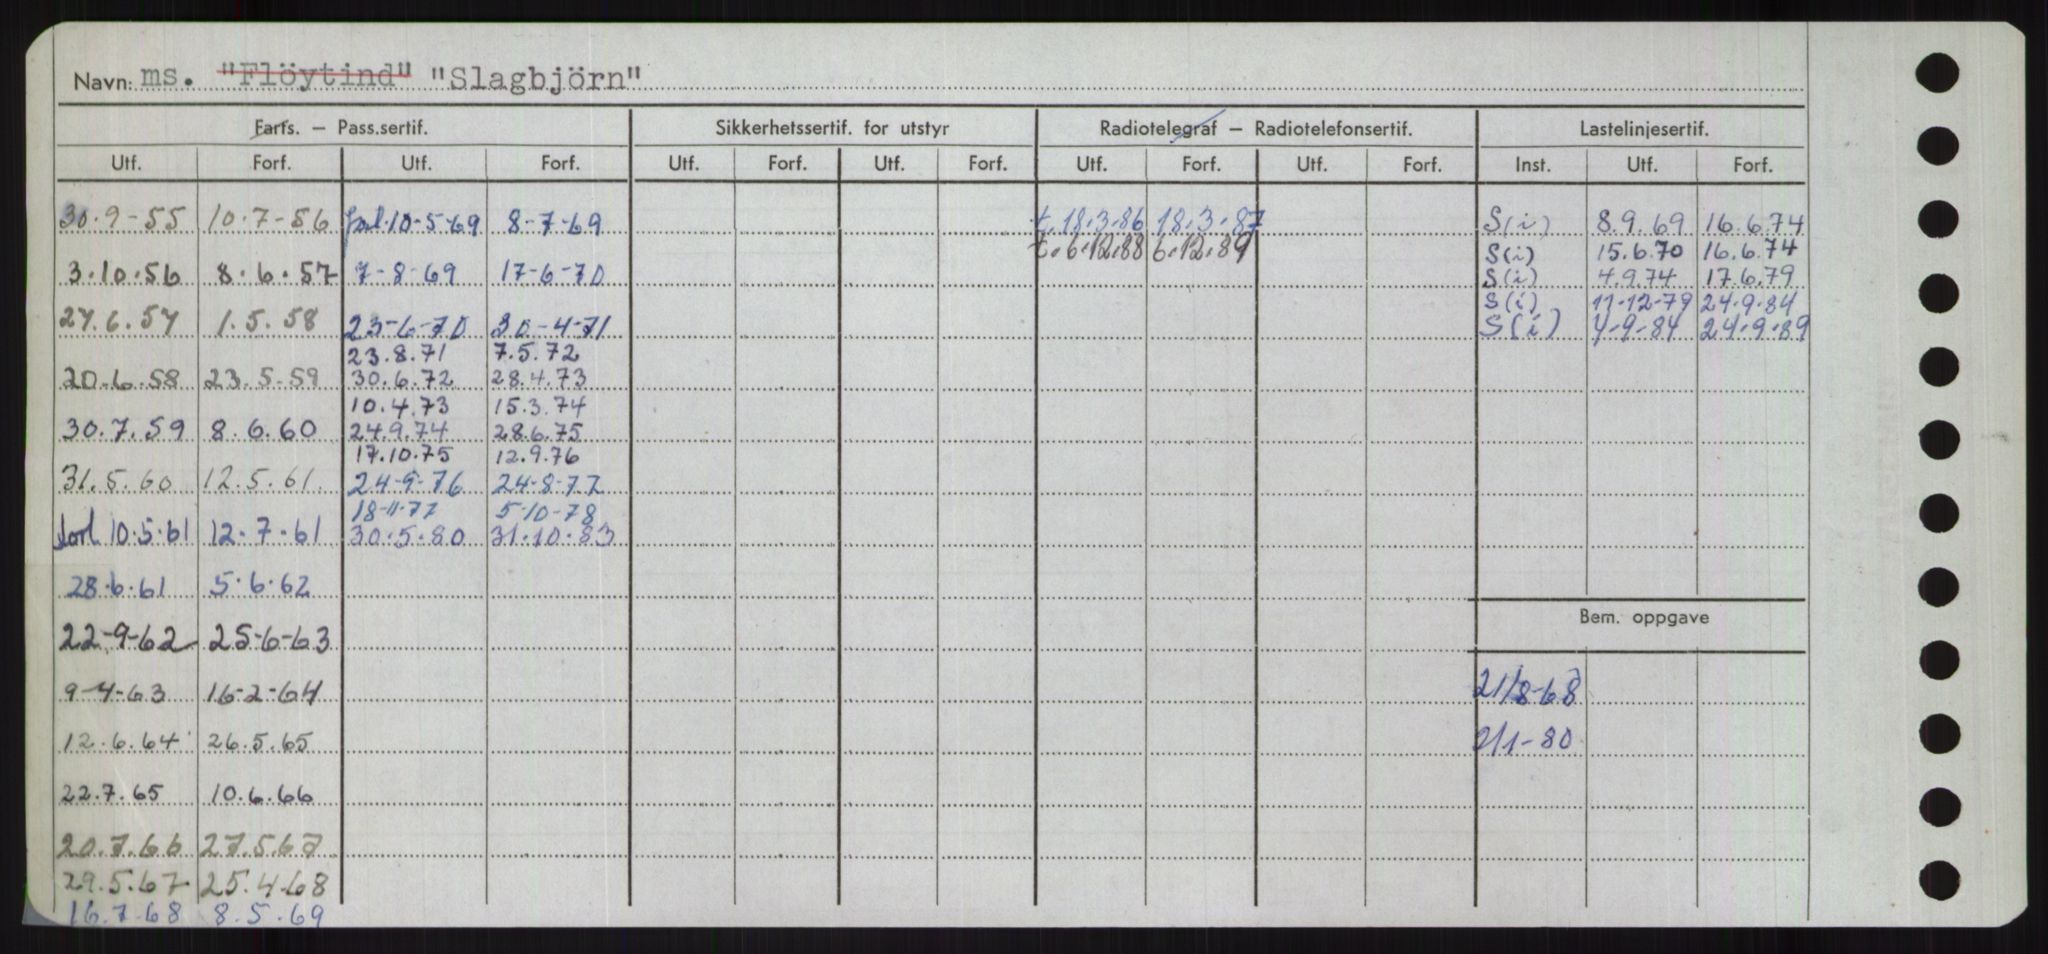 Navn: ms. "Flöytind" "Slagbjörn"
Farts. – Pass.sertif. Sikkerhetssertif. for utstyr Radiotelegraf – Radiotelefonsertif. Lastelinjesertif.
Utf. Forf. Utf. Forf. Utf. Forf. Utf. Forf. Utf. Forf. Utf. Forf. Inst. Utf. Forf.
30.9-55 10.7-56 forl.10-5-69 8-7-69 t.18.3.86 18.3.87 S(i) 8.9.69 16.6.74
t.6.12.88 6.12.89 S(i) 15.6.70 16.6.74
3.10.56 8.6.57 7-8-69 17-6-70 S(i) 4.9.74 17.6.79
S(i) 11-12-79 24.9.84
27.6.57 1.5.58 23-6-70 30-4-71 S(i) 4-9-84 24.9.89
23.8.71 7.5.72
20.6.58 23.5-59 30.6.72 28.4.73
10.4.73 15.3.74
30.7.59 8.6.60 24.9.74 28.6.75
17.10.75 12.9.76
31.5.60 12.5.61. 24-9-76 24-8-77
18-11-77 5-10-78
forl 10.5.61 12.7.61 30.5.80 31.10.83
28.6.61 5.6.62
Bem. oppgave
22-9-62 25-6-63
9-4-63 16-2-64 21/8-68
12.6.64 26.5.65 2/1-80
22.7.65 10.6.66
20.7.66 27.5.67
29.5.67 25.4-68
16.7.68 8.5.69